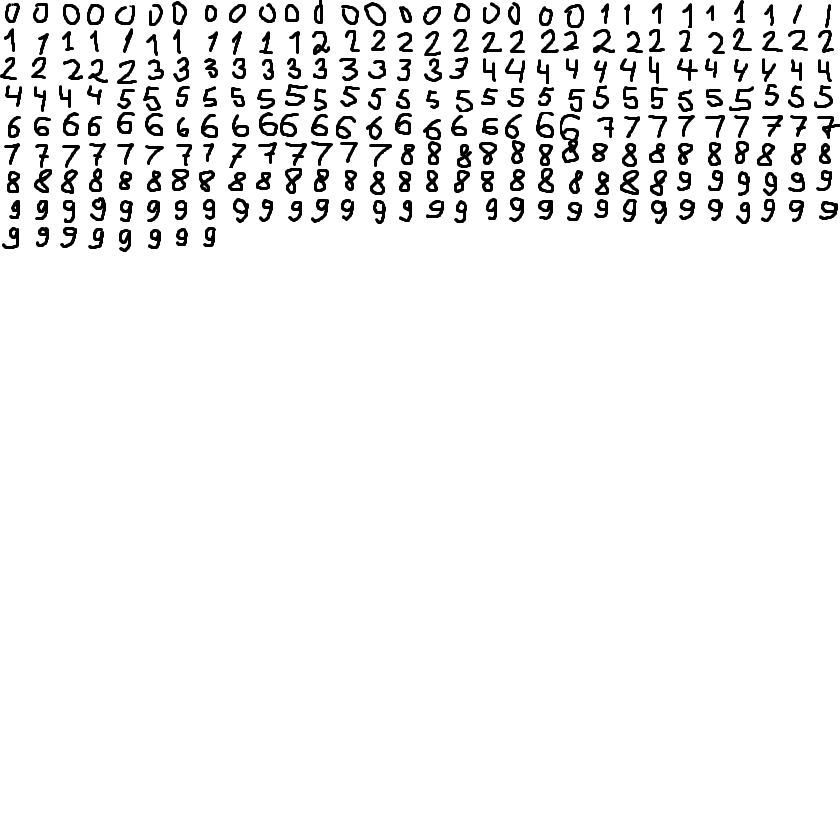 0 0 0 0 0 0 0 0 0 0 0 0 0 0 0 0 0 0 0 0 0 1 1 1 1 1 1 1 1 1
1 1 1 1 1 1 1 1 1 1 1 2 2 2 2 2 2 2 2 2 2 2 2 2 2 2 2 2 2 2
2 2 2 2 2 3 3 3 3 3 3 3 3 3 3 3 3 4 4 4 4 4 4 4 4 4 4 4 4 4
4 4 4 4 5 5 5 5 5 5 5 5 5 5 5 5 5 5 5 5 5 5 5 5 5 5 5 5 5 5
6 6 6 6 6 6 6 6 6 6 6 6 6 6 6 6 6 6 6 6 6 7 7 7 7 7 7 7 7 7
7 7 7 7 7 7 7 7 7 7 7 7 7 7 8 8 8 8 8 8 8 8 8 8 8 8 8 8 8 8
8 8 8 8 8 8 8 8 8 8 8 8 8 8 8 8 8 8 8 8 8 8 8 8 9 9 9 9 9 9
9 9 9 9 9 9 9 9 9 9 9 9 9 9 9 9 9 9 9 9 9 9 9 9 9 9 9 9 9 9
9 9 9 9 9 9 9 9